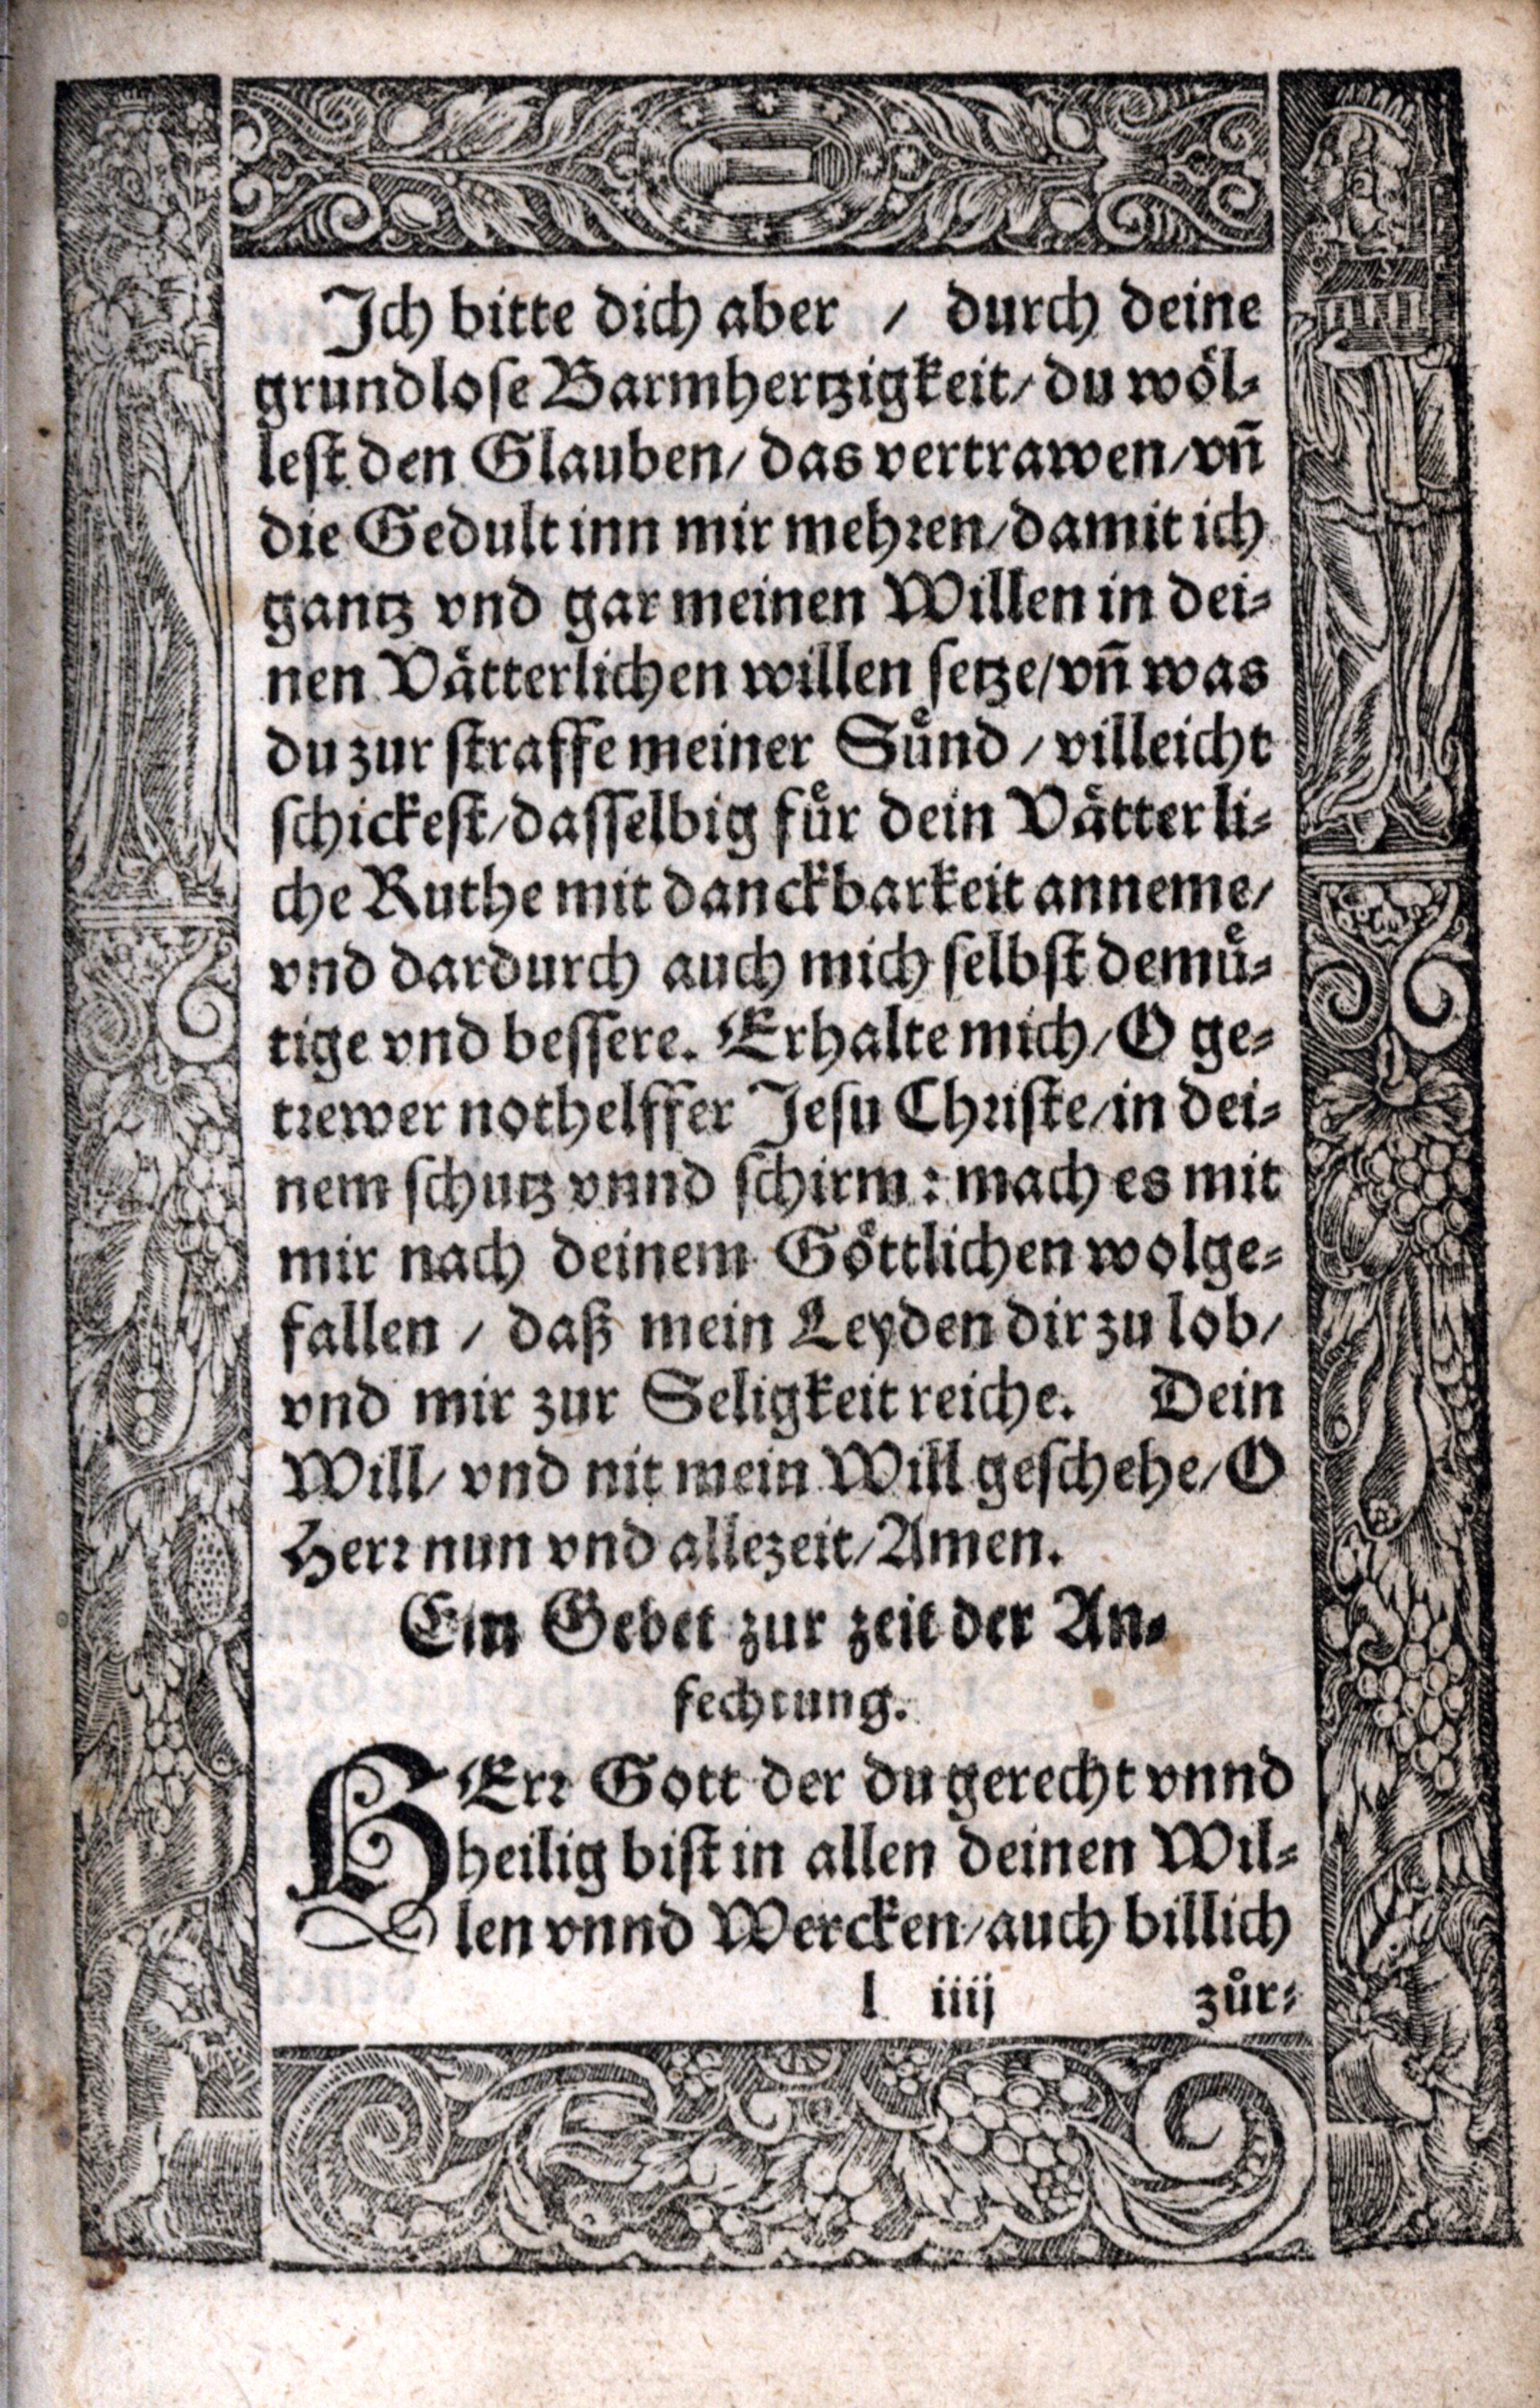 Ich bitte dich aber / durch deine
grundlose Barmhertzigkeit/ du wöl-
lest den Glauben/ das vertrawen/ vñ
die Gedult inn mir mehren/ damit ich
gantz vnd gar meinen Willen in dei-
nen Vätterlichen willen setze/ vñ was
du zur straffe meiner Sünd / villeicht
schickest/ dasselbig für dein Vätterli-
che Ruthe mit danckbarkeit anneme/
vnd dardurch auch mich selbst demü-
tige vnd bessere. Erhalte mich/ O ge-
trewer nothelffer Jesu Christe/ in dei-
nem schutz vnnd schirm: mach es mit
mir nach deinem Göttlichen wolge-
fallen / daß mein Leyden dir zu lob/
vnd mir zur Seligkeit reiche. Dein
Will/ vnd nit mein Will geschehe/ O
Herr nun vnd allezeit/ Amen.
Ein Gebet zur zeit der An-
fechtung.
HErr Gott der du gerecht vnnd
heilig bist in allen deinen Wil-
len vnnd Wercken/ auch billich
l iiij zür-